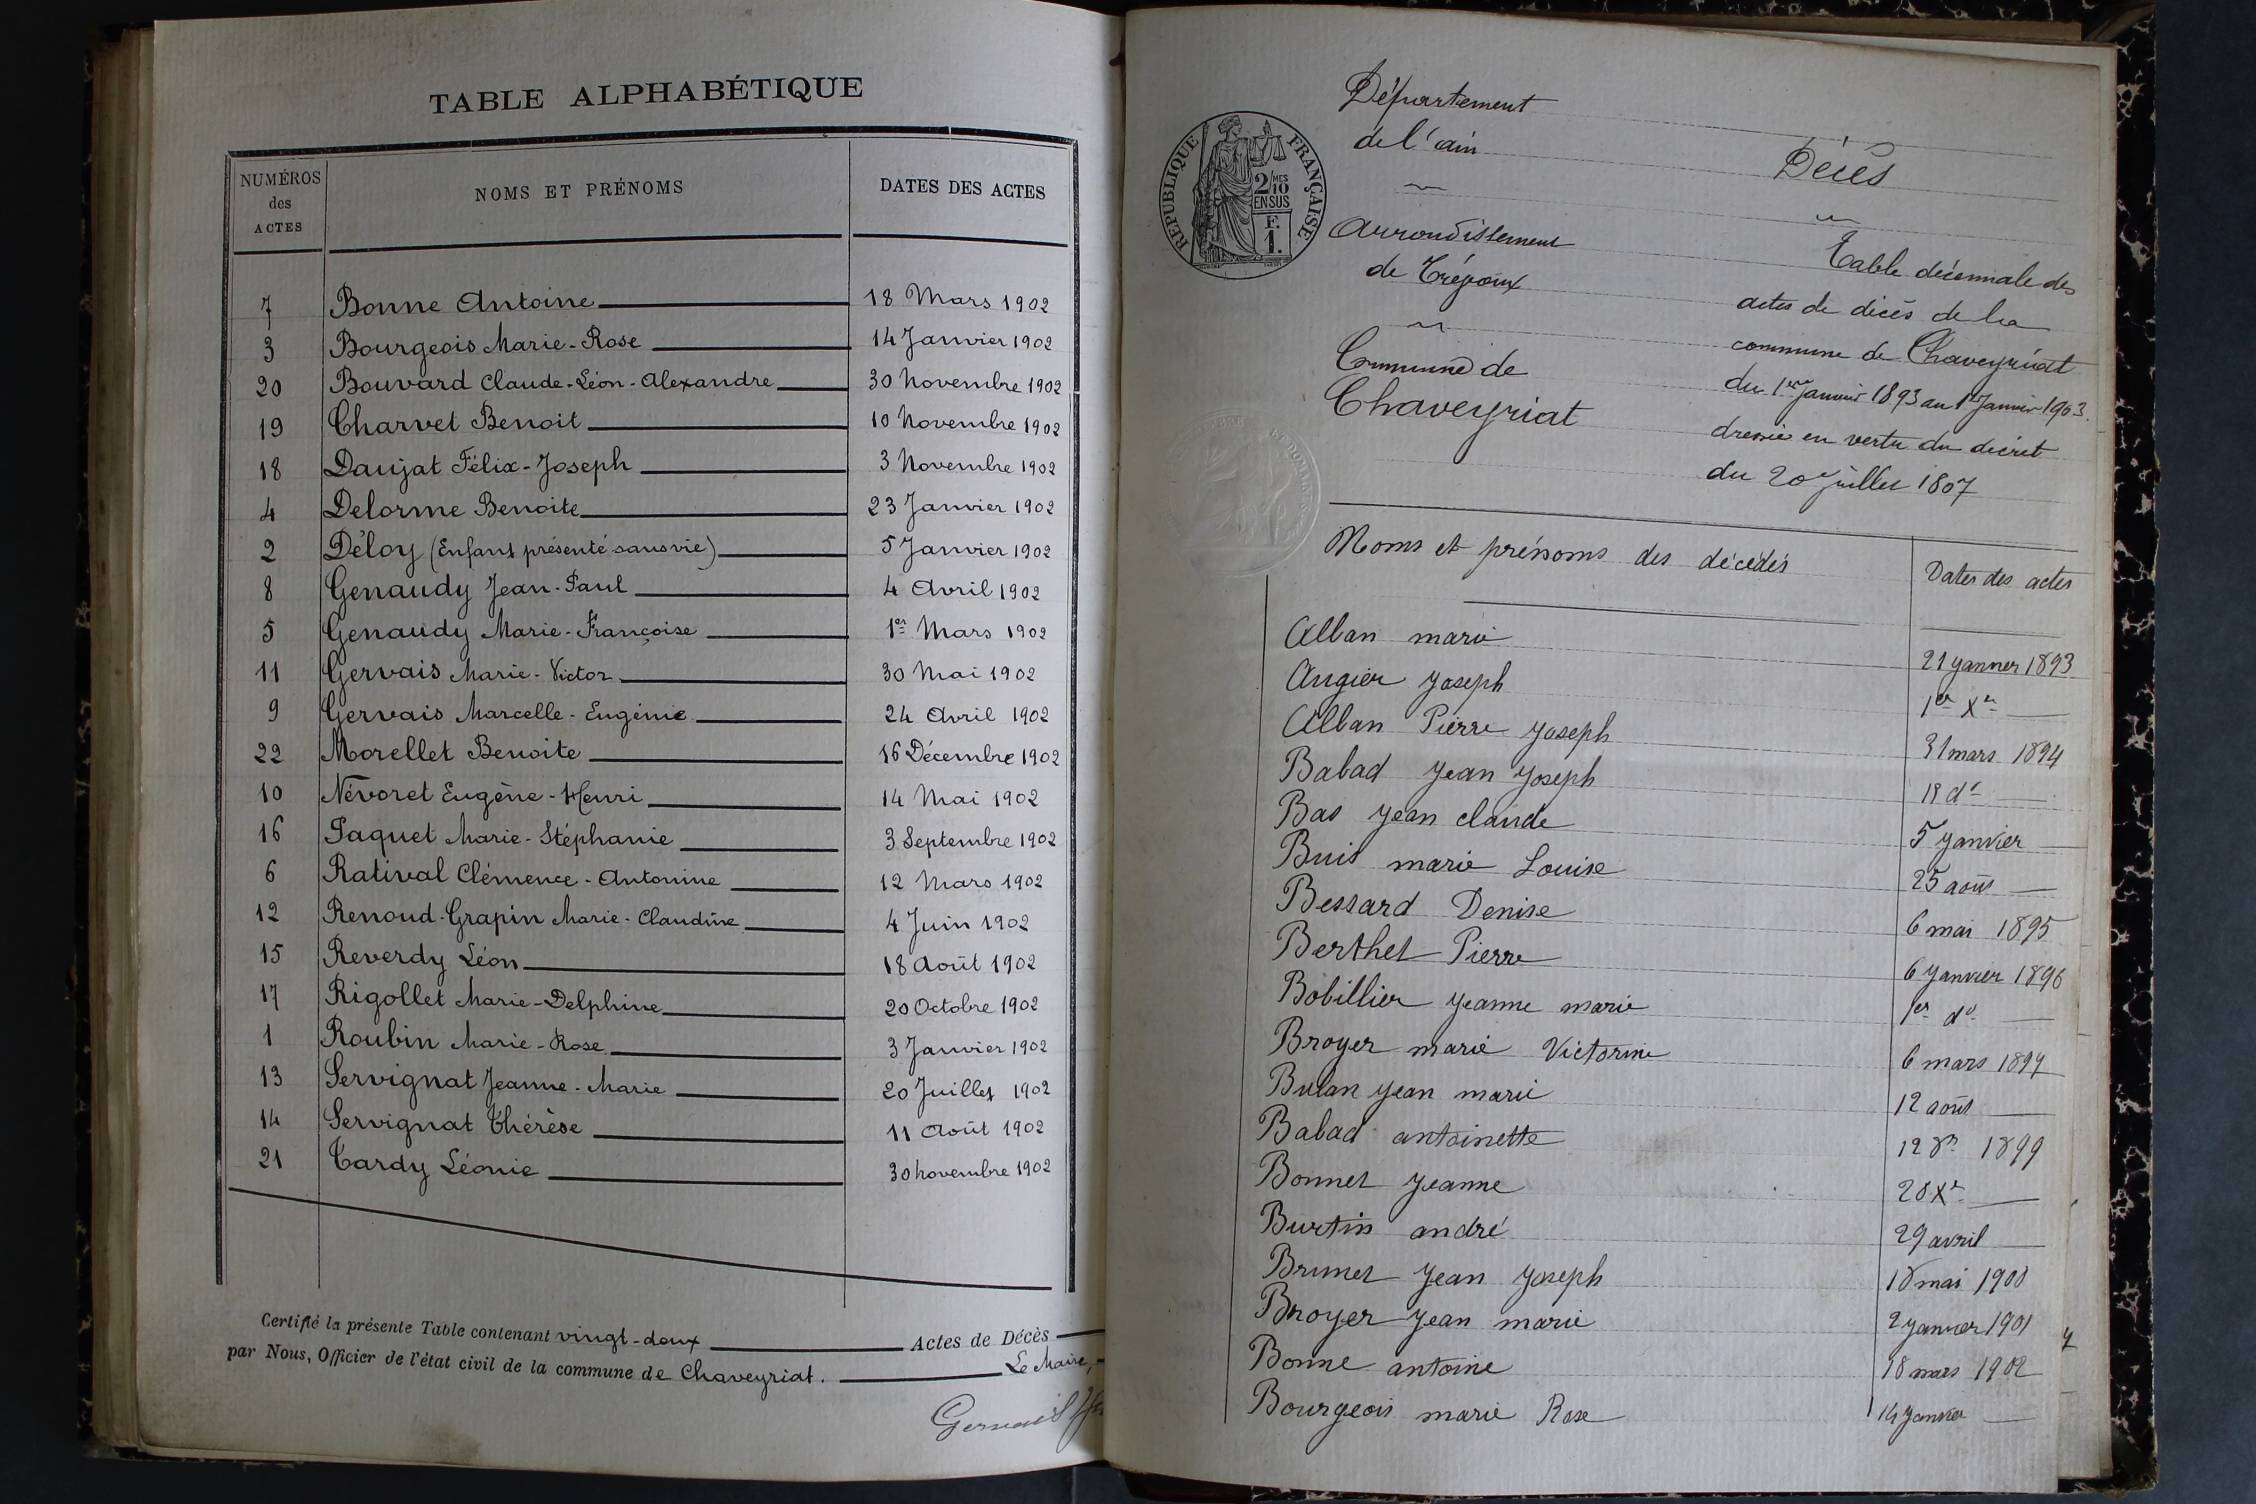 TABLE ALPHABÉTIQUE
NUMÉROS
des
ACTES
NOMS ET PRÉNOMS
DATES DES ACTES
7 Bonne Antoine 18 Mars 1902
3 Bourgeois Marie-Rose 14 Janvier 1902
20 Bouvard Claude-Léon-Alexandre 30 Novembre 1902
19 Charvet Benoit 10 Novembre 1902
18 Daujat Félix-Joseph 3 Novembre 1902
4 Delorme Benoite 23 Janvier 1902
2 Déloy (Enfant présenté sans vie) 5 Janvier 1902
8 Genaudy Jean-Paul 4 Avril 1902
5 Genaudy Marie-Françoise 1er Mars 1902
11 Gervais Marie-Victor 30 Mai 1902
9 Gervais Marcelle-Eugénie 24 Avril 1902
22 Morellet Benoite 16 Décembre 1902
10 Névoret Eugène-Henri 14 Mai 1902
16 Paquet Marie-Stéphanie 3 Septembre 1902
6 Ratival Clémence-Antonine 12 Mars 1902
12 Renoud-Grapin Marie-Claudine 4 Juin 1902
15 Reverdy Léon 18 Août 1902
17 Rigollet Marie-Delphine 20 Octobre 1902
1 Roubin Marie-Rose 3 Janvier 1902
13 Servignat Jeanne-Marie 20 Juillet 1902
14 Servignat Thérèse 11 Août 1902
21 Tardy Léonie 30 novembre 1902
Certifié la présente Table contenant vingt-deux Actes de Décès
par Nous, Officier de l'état civil de la commune de Chaveyriat. Le Maire,
Gervais
RÉPUBLIQUE FRANÇAISE
2/10 MES
EN SUS
F.
1.
Département
de l'ain
Arrondissement
de Trévoux
Commune de
Chaveyriat
Décès
Table décennale des
actes de décès de la
commune de Chaveyriat
du 1er Janvier 1893 au 1er Janvier 1903.
dressée en vertu du décret
du 20 juillet 1807
Noms et prénoms des décédés Dates des actes
Alban marie 21 janvier 1893
Augier Joseph 1er Xre
Alban Pierre Joseph 31 mars 1894
Babad Jean Joseph 18 do
Bas Jean claude 5 janvier
Buis marie Louise 25 août
Bessard Denise 6 mai 1895
Berthet Pierre 6 janvier 1896
Bobillier Jeanne marie 1er do
Broyer marie Victorine 6 mars 1897
Bulan Jean marie 12 août
Babad antoinette 12 8re 1899
Bonnet Jeanne 28 Xre
Burtin andré 29 avril
Brunet Jean Joseph 18 mai 1900
Broyer Jean marie 2 janvier 1901
Bonne antoine 18 mars 1902
Bourgeois marie Rose 14 janvier